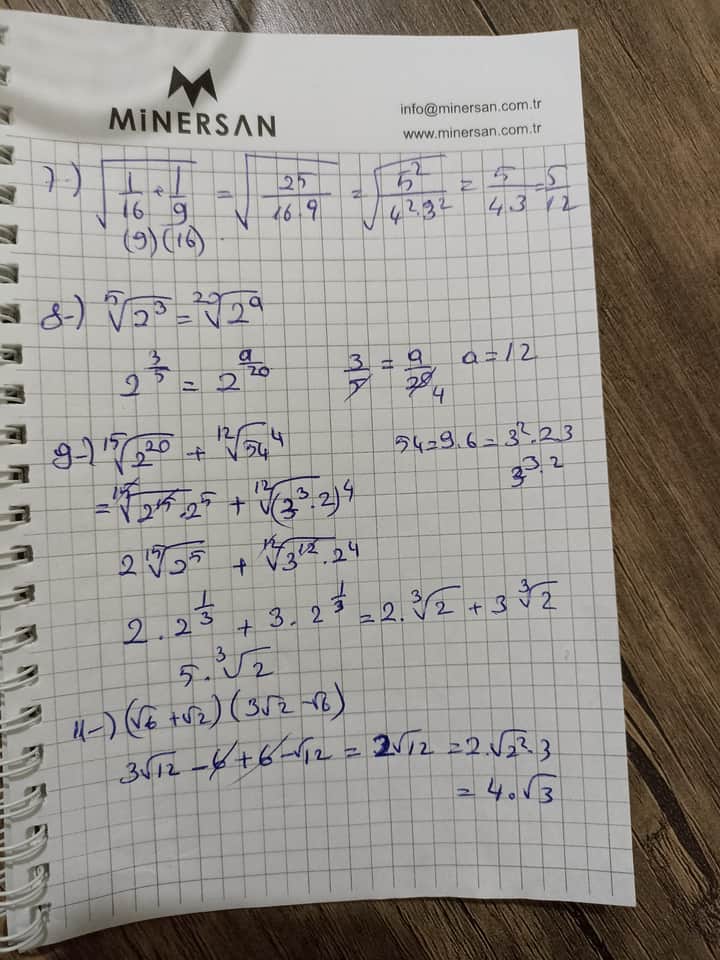 MiNERSAN
info@minersan.com.tr
www.minersan.com.tr
7-) √(1/16 + 1/9) = √(25/(16·9)) = √(5²/(4²·3²)) = 5/(4·3) = 5/12
(9) (16)
8-) ⁵√2³ = ²⁰√2ᵃ
2^(3/5) = 2^(a/20) 3/5 = a/20 a = 12
4
9-) ¹⁵√2²⁰ + ¹²√54⁴ 54 = 9.6 = 3².2.3
3³.2
= ¹⁵√2¹⁵.2⁵ + ¹²√(3³.2)⁴
2 ¹⁵√2⁵ + ¹²√3¹².2⁴
2.2^(1/3) + 3.2^(1/3) = 2.³√2 + 3 ³√2
5.³√2
11-) (√6 + √2) (3√2 - √6)
3√12 - 6 + 6 - √12 = 2√12 = 2.√2².3
= 4.√3